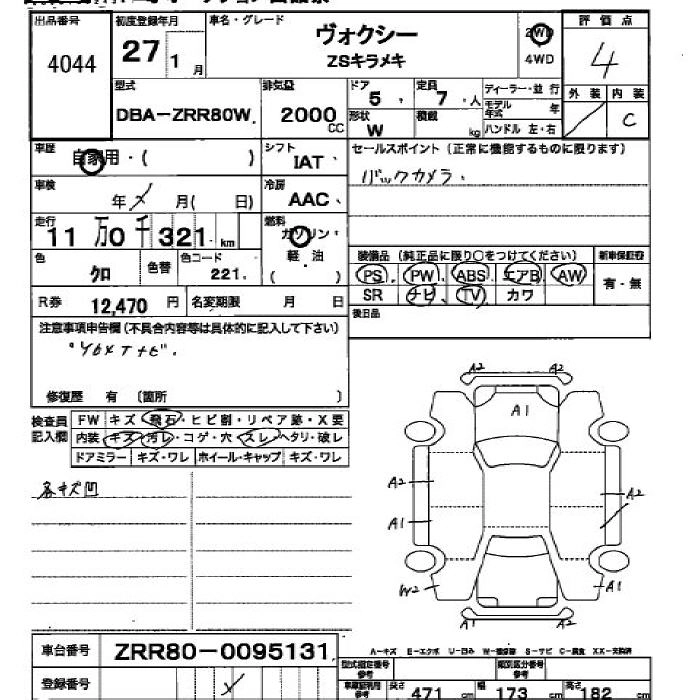 出品番号 初度登録年月 車名・グレード 評価点
4044 27 1月 ヴォクシー 2WD 4
ZSキラメキ 4WD
型式 排気量 ドア 定員 ディーラー・並 行 外装 内装
DBA-ZRR80W 2000 CC 5 7 人 モデル年式 年 C
形状 W 積載 kg ハンドル 左・右
車歴 自家用・( ) シフト IAT セールスポイント (正常に機能するものに限ります)
バックカメラ、
車検 年 月( 日) 冷房 AAC
走行 11万0千321 km 燃料 ガソリン・
軽・油
( )
色 クロ 色替 色コード 221
装備品 (純正品に限り○をつけてください) 新車保証書
PS PW ABS エアB AW 有・無
SR ナビ TV カワ
R券 12,470 円 名変期限 月 日 後日品
注意事項申告欄(不具合内容等は具体的に記入して下さい)
修復歴 有 〔箇所 〕
検査員記入欄 FW キズ・飛石・ヒビ割・リペア跡・X要
内装 キズ・汚レ・コゲ・穴・スレ・ヘタリ・破レ
ドアミラー キズ・ワレ ホイール・キャップ キズ・ワレ
各キズ凹
A2 A2
A1
A2 A2
A1
W2 A1
A2 A2
車台番号 ZRR80-0095131
A-キズ E-エクボ U-凹み W-補修跡 S-サビ C-腐食 XX-交換済
登録番号 型式指定番号 参考 類別区分番号 参考
長さ 471 cm 幅 173 cm 高さ 182 cm